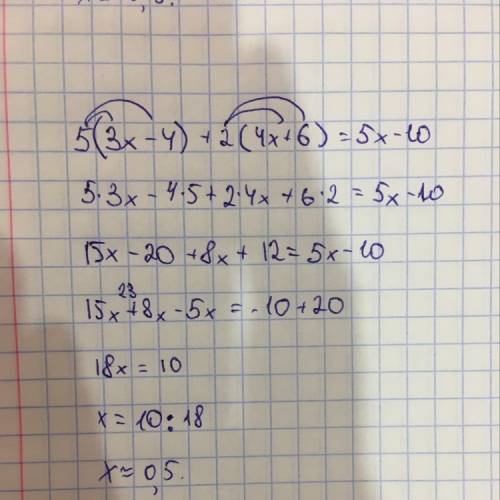 5(3x-4)+2(4x+6)=5x-10
5·3x-4·5+2·4x+6·2=5x-10
15x-20+8x+12=5x-10
23
15x+8x-5x=-10+20
18x=10
x=10:18
x≈0,5.